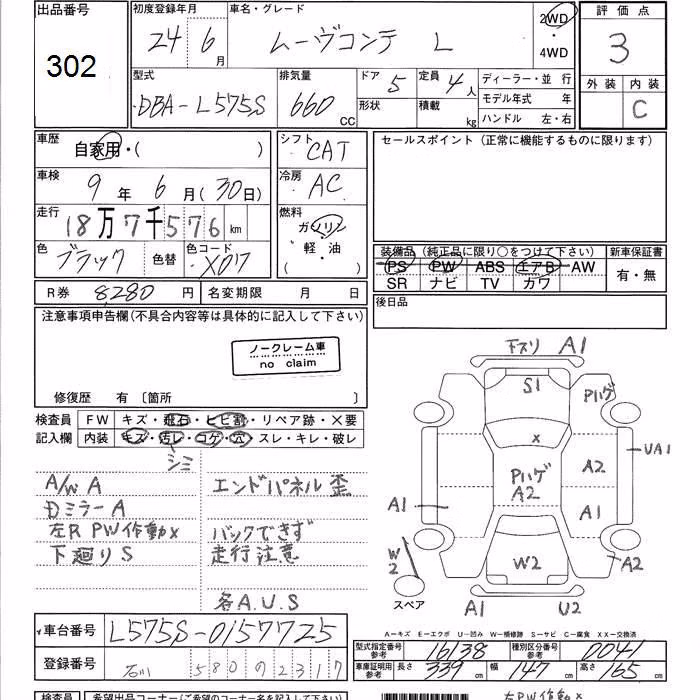 出品番号 初度登録年月 車名・グレード 2WD ・ 4WD 評価点
302 24 6月 ムーヴコンテ L 3
型式 排気量 ドア 5 定員 4人 ディーラー・並行 外装 内装
DBA-L575S 660 CC 形状 積載 kg モデル年式 年 C
ハンドル 左・右
車歴 自家用・( ) シフト CAT セールスポイント (正常に機能するものに限ります)
車検 9年 6月(30日) 冷房 AC
走行 18万7千576 km 燃料 ガソリン
軽・油
( )
色 ブラック 色替 色コード X07
装備品 (純正品に限り○をつけて下さい) 新車保証書
PS PW ABS エアB AW 有・無
SR ナビ TV カワ
R券 8,280 円 名変期限 月 日 後日品
注意事項申告欄(不具合内容等は具体的に記入して下さい)
ノークレーム車
no claim
修復歴 有 〔箇所 〕
検査員 FW キズ・飛石・ヒビ割・リペア跡・X要
記入欄 内装 キズ・汚レ・コゲ・穴・スレ・キレ・破レ
シミ
A/W A エンドパネル歪
Dミラー A
左R PW作動x バックできず
下廻りS 走行注意
各A.U.S
下スリ A1
S1 Pハゲ
x UA1
Pハゲ A2 A2
A1 A1
W2 W2 A2
スペア A1 U2
A─キズ E─エクボ U─凹み W─補修跡 S─サビ C─腐食 XX─交換済
車台番号 L575S-0157725
型式指定番号 参考 16138 種別区分番号 参考 0041
登録番号 石川 580 の 2317
車庫証明用 参考 長さ 339 cm 幅 147 cm 高さ 165 cm
検査員 希望出品コーナー(ご希望のコーナー名を記入して下さい) 左PW作動x